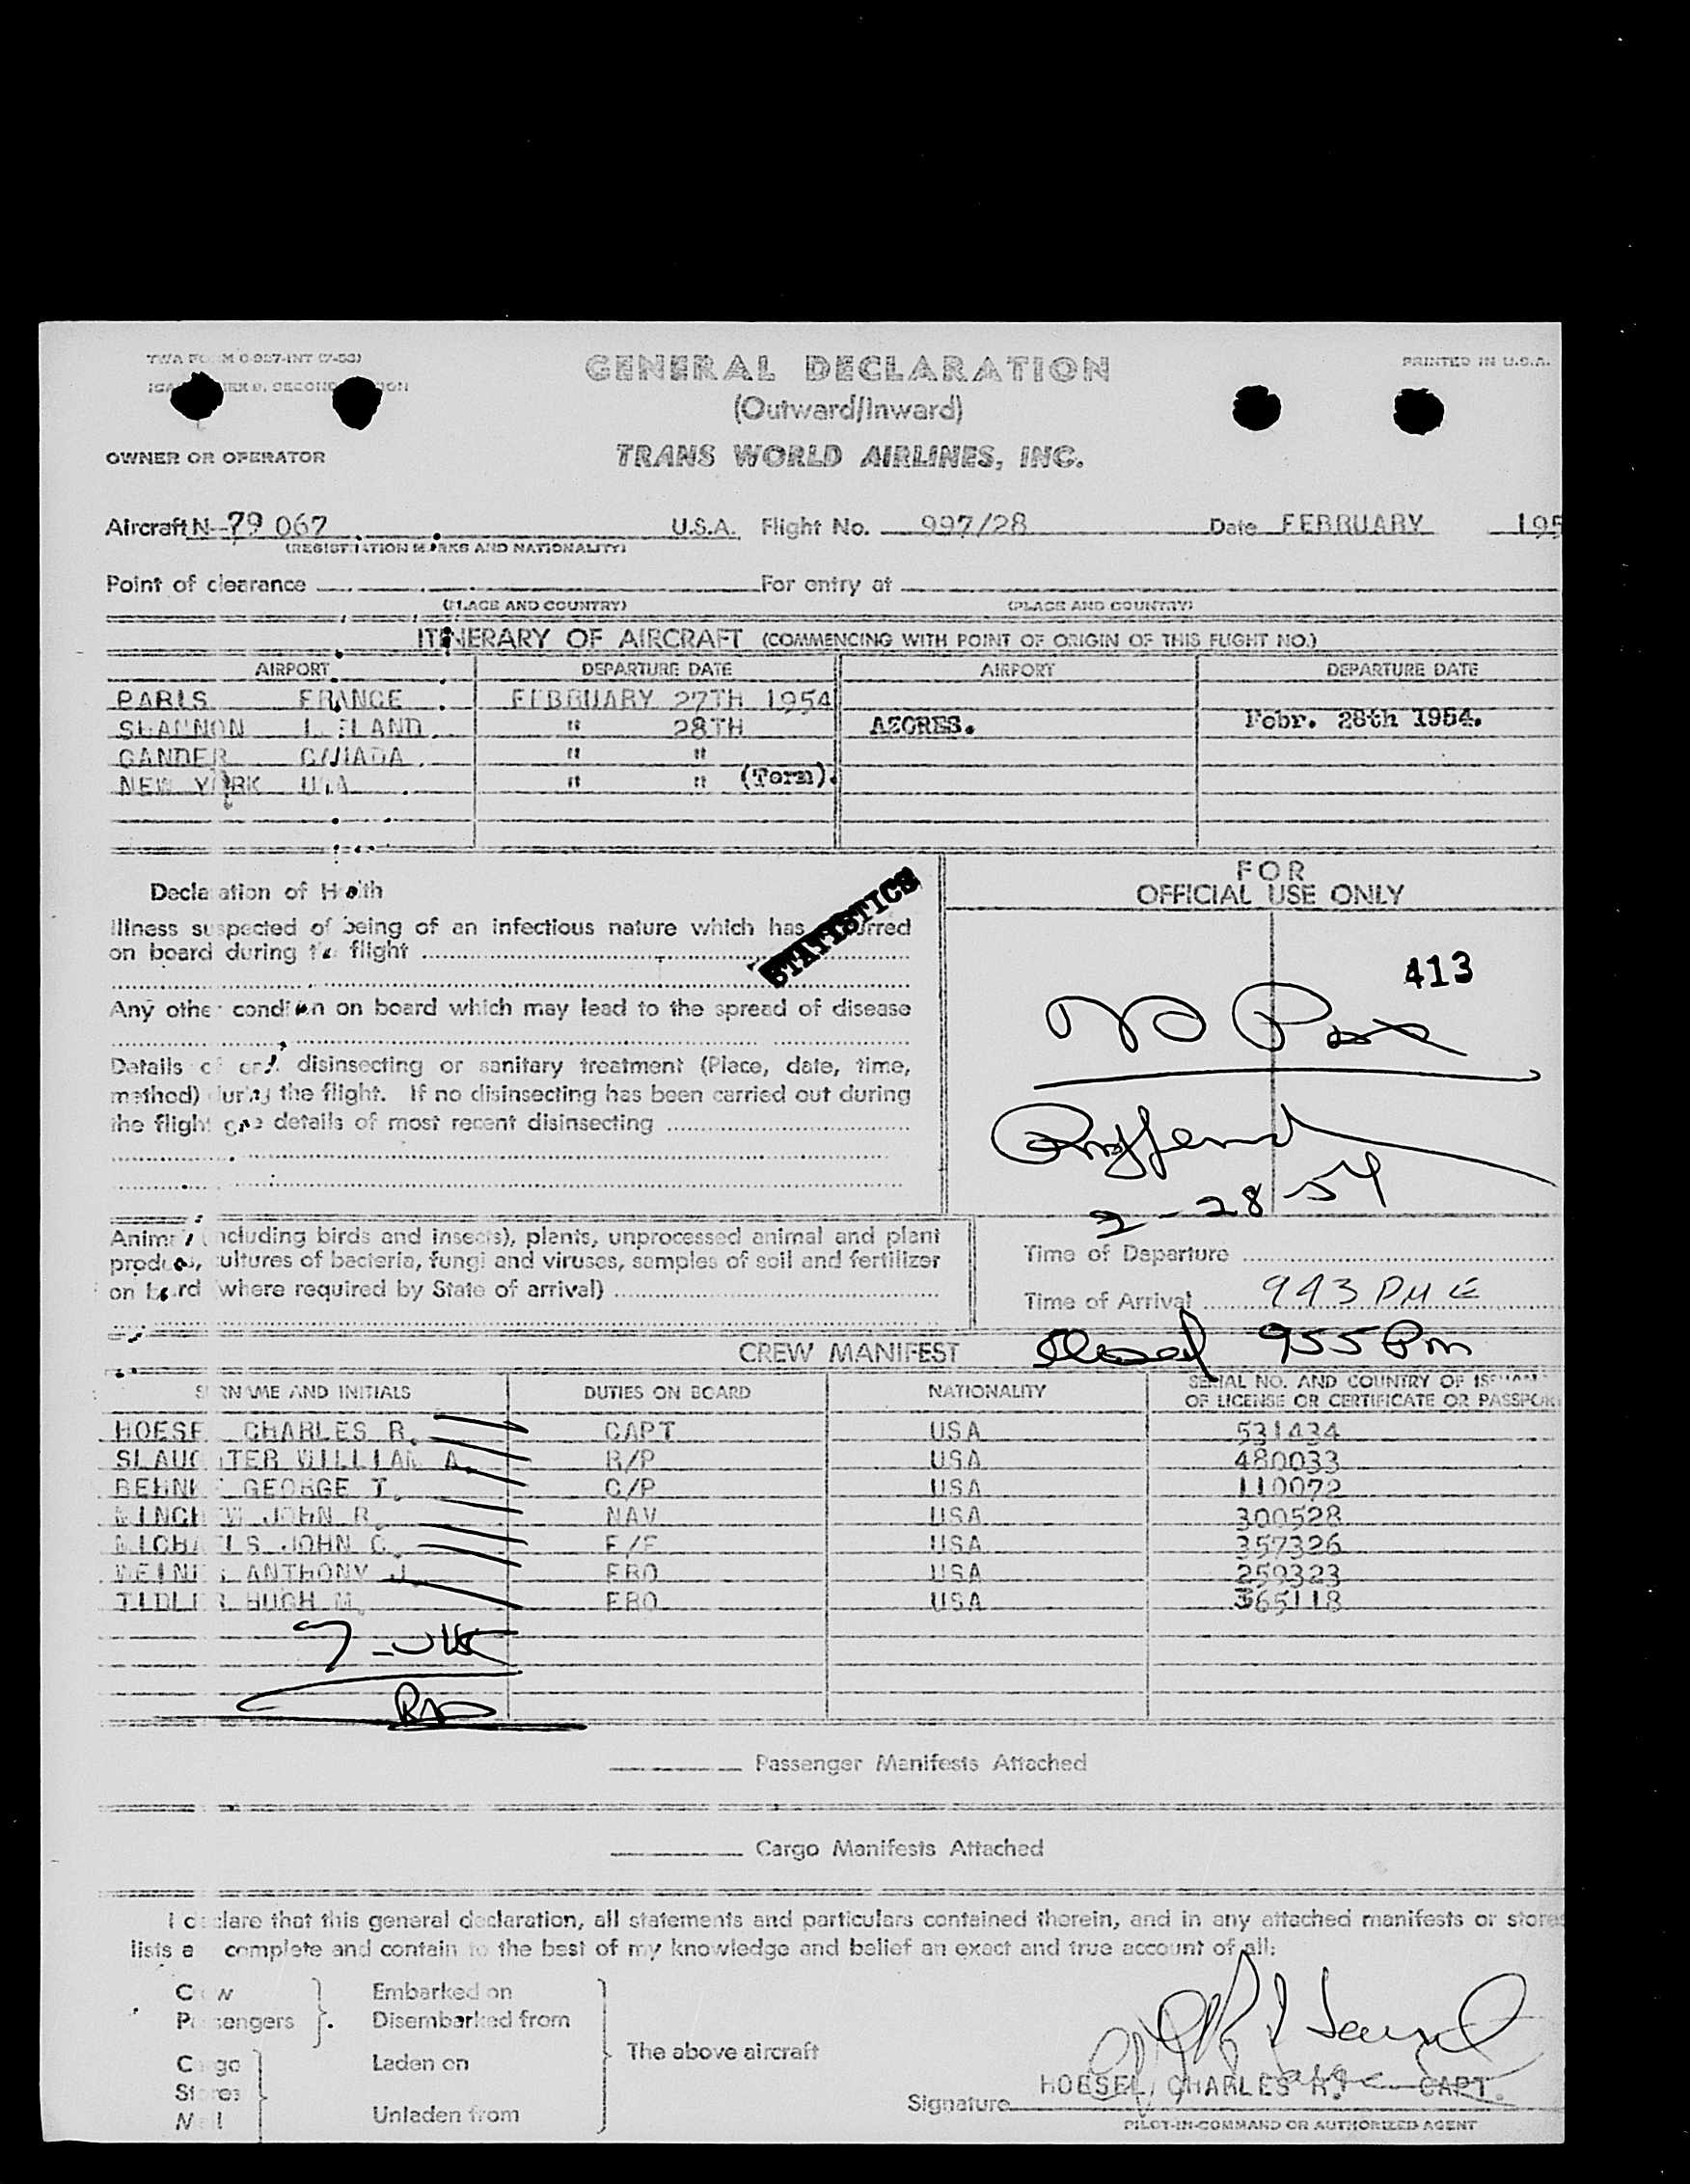 TWA FORM O-927-INT (7-53)
PRINTED IN U.S.A.
GENERAL DECLARATION
(Outward/Inward)
OWNER OR OPERATOR
TRANS WORLD AIRLINES, INC.
Aircraft N-79 067 U.S.A. Flight No. 997/28 Date FEBRUARY 195
(REGISTRATION MARKS AND NATIONALITY)
Point of clearance For entry at
(PLACE AND COUNTRY) (PLACE AND COUNTRY)
ITINERARY OF AIRCRAFT (COMMENCING WITH POINT OF ORIGIN OF THIS FLIGHT NO.)
AIRPORT DEPARTURE DATE AIRPORT DEPARTURE DATE
PARIS FRANCE FEBRUARY 27TH 1954
SHANNON IRELAND " 28TH AZORES. Febr. 28th 1954.
GANDER CANADA " "
NEW YORK USA " " (Term).
FOR
OFFICIAL USE ONLY
Declaration of Health
Illness suspected of being of an infectious nature which has occurred
on board during the flight
STATISTICS
Any other condition on board which may lead to the spread of disease
Details of any disinsecting or sanitary treatment (Place, date, time,
method) during the flight. If no disinsecting has been carried out during
the flight give details of most recent disinsecting
413
No Pax
2-28 54
Animals (including birds and insects), plants, unprocessed animal and plant
products, cultures of bacteria, fungi and viruses, samples of soil and fertilizer
on board (where required by State of arrival)
Time of Departure
Time of Arrival 943 PM E
CREW MANIFEST Closed 955 Pm
SURNAME AND INITIALS DUTIES ON BOARD NATIONALITY SERIAL NO. AND COUNTRY OF ISSUANCE
OF LICENSE OR CERTIFICATE OR PASSPORT
HOESEL CHARLES R. CAPT USA 531434
SLAUGHTER WILLIAM A. R/P USA 480033
BEHNKE GEORGE T. C/P USA 110072
MINCHEW JOHN R. NAV USA 300528
MICHAELS JOHN C. F/E USA 357326
ANTHONY J. FRO USA 259323
HUGH M. FRO USA 365118
Passenger Manifests Attached
Cargo Manifests Attached
I declare that this general declaration, all statements and particulars contained therein, and in any attached manifests or stores
lists are complete and contain to the best of my knowledge and belief an exact and true account of all:
Crew Embarked on
Passengers Disembarked from
The above aircraft
Cargo Laden on
Stores
Mail Unladen from
HOESEL, CHARLES R. CAPT.
Signature
PILOT-IN-COMMAND OR AUTHORIZED AGENT